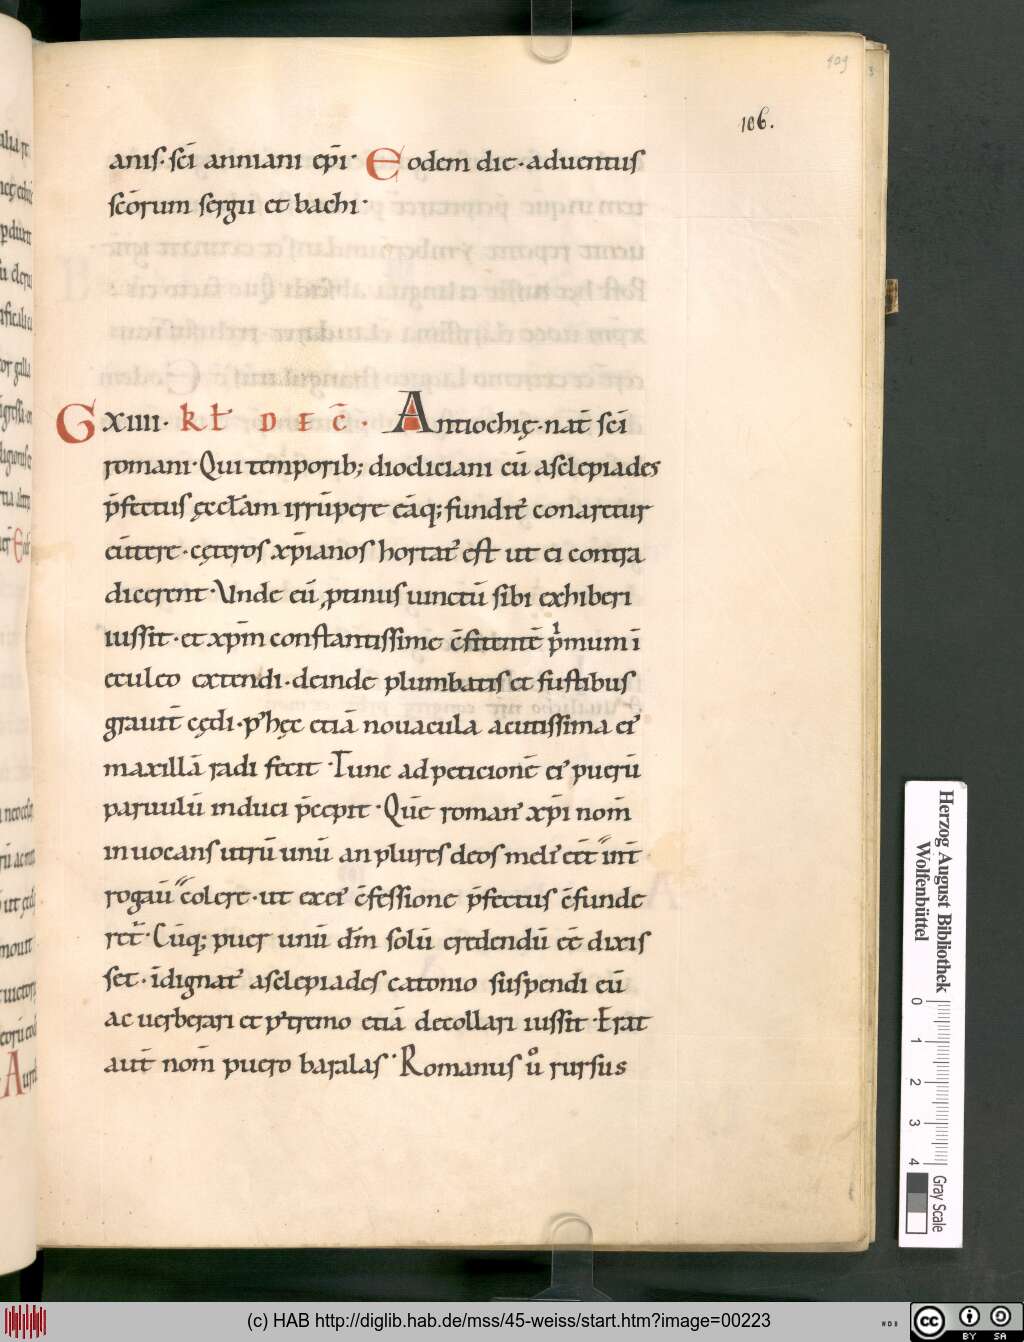 409
3
106.
anis· sc̄i anniani ep̄i· Eodem die· aduentus
sc̄orum sergii et bachi·
G XIIII· KL̄ DEC̄· Antiochię· nat̄ sc̄i
romani· Qui temporib; diocliciani cū asclepiades
p̄fectus ęcc̄łam irrūpere eāq; fundit᷒ conaretur
euīttere· cęteros xp̄ianos hortat᷒ est ut ei contra
dicerent· Unde eū ꝓtinus uinctū sibi exhiberi
iussit· et xp̄m constantissime c̄fitentē p̍mum ī
eculeo extendi· deinde plumbatis et fustibus
grauit̄ cędi· p᷒ hęc etiā nouacula acutissima ei᷒
maxillā radi fecit· Tunc ad peticionē ei᷒ puerū
paruulū induci p̄cepit· Quē roman᷒ xp̄i nom̄
inuocans utrū unū an plures deos meli᷒ eēt īnt̄
rogauī colere· ut ex ei᷒ c̄fessione p̄fectus c̄funde
ret᷒· Cūq; puer unū dm̄ solū credendū eē dixis
set· īdignat᷒ asclepiades catomo suspendi eū
ac uerberari et p᷒tremo etiā decollari iussit· Erat
aut̄ nom̄ puero baralas· Romanus uͦ rursus
Herzog August Bibliothek
Wolfenbüttel
0 1 2 3 4
Gray Scale
(c) HAB http://diglib.hab.de/mss/45-weiss/start.htm?image=00223
WDB
cc BY SA